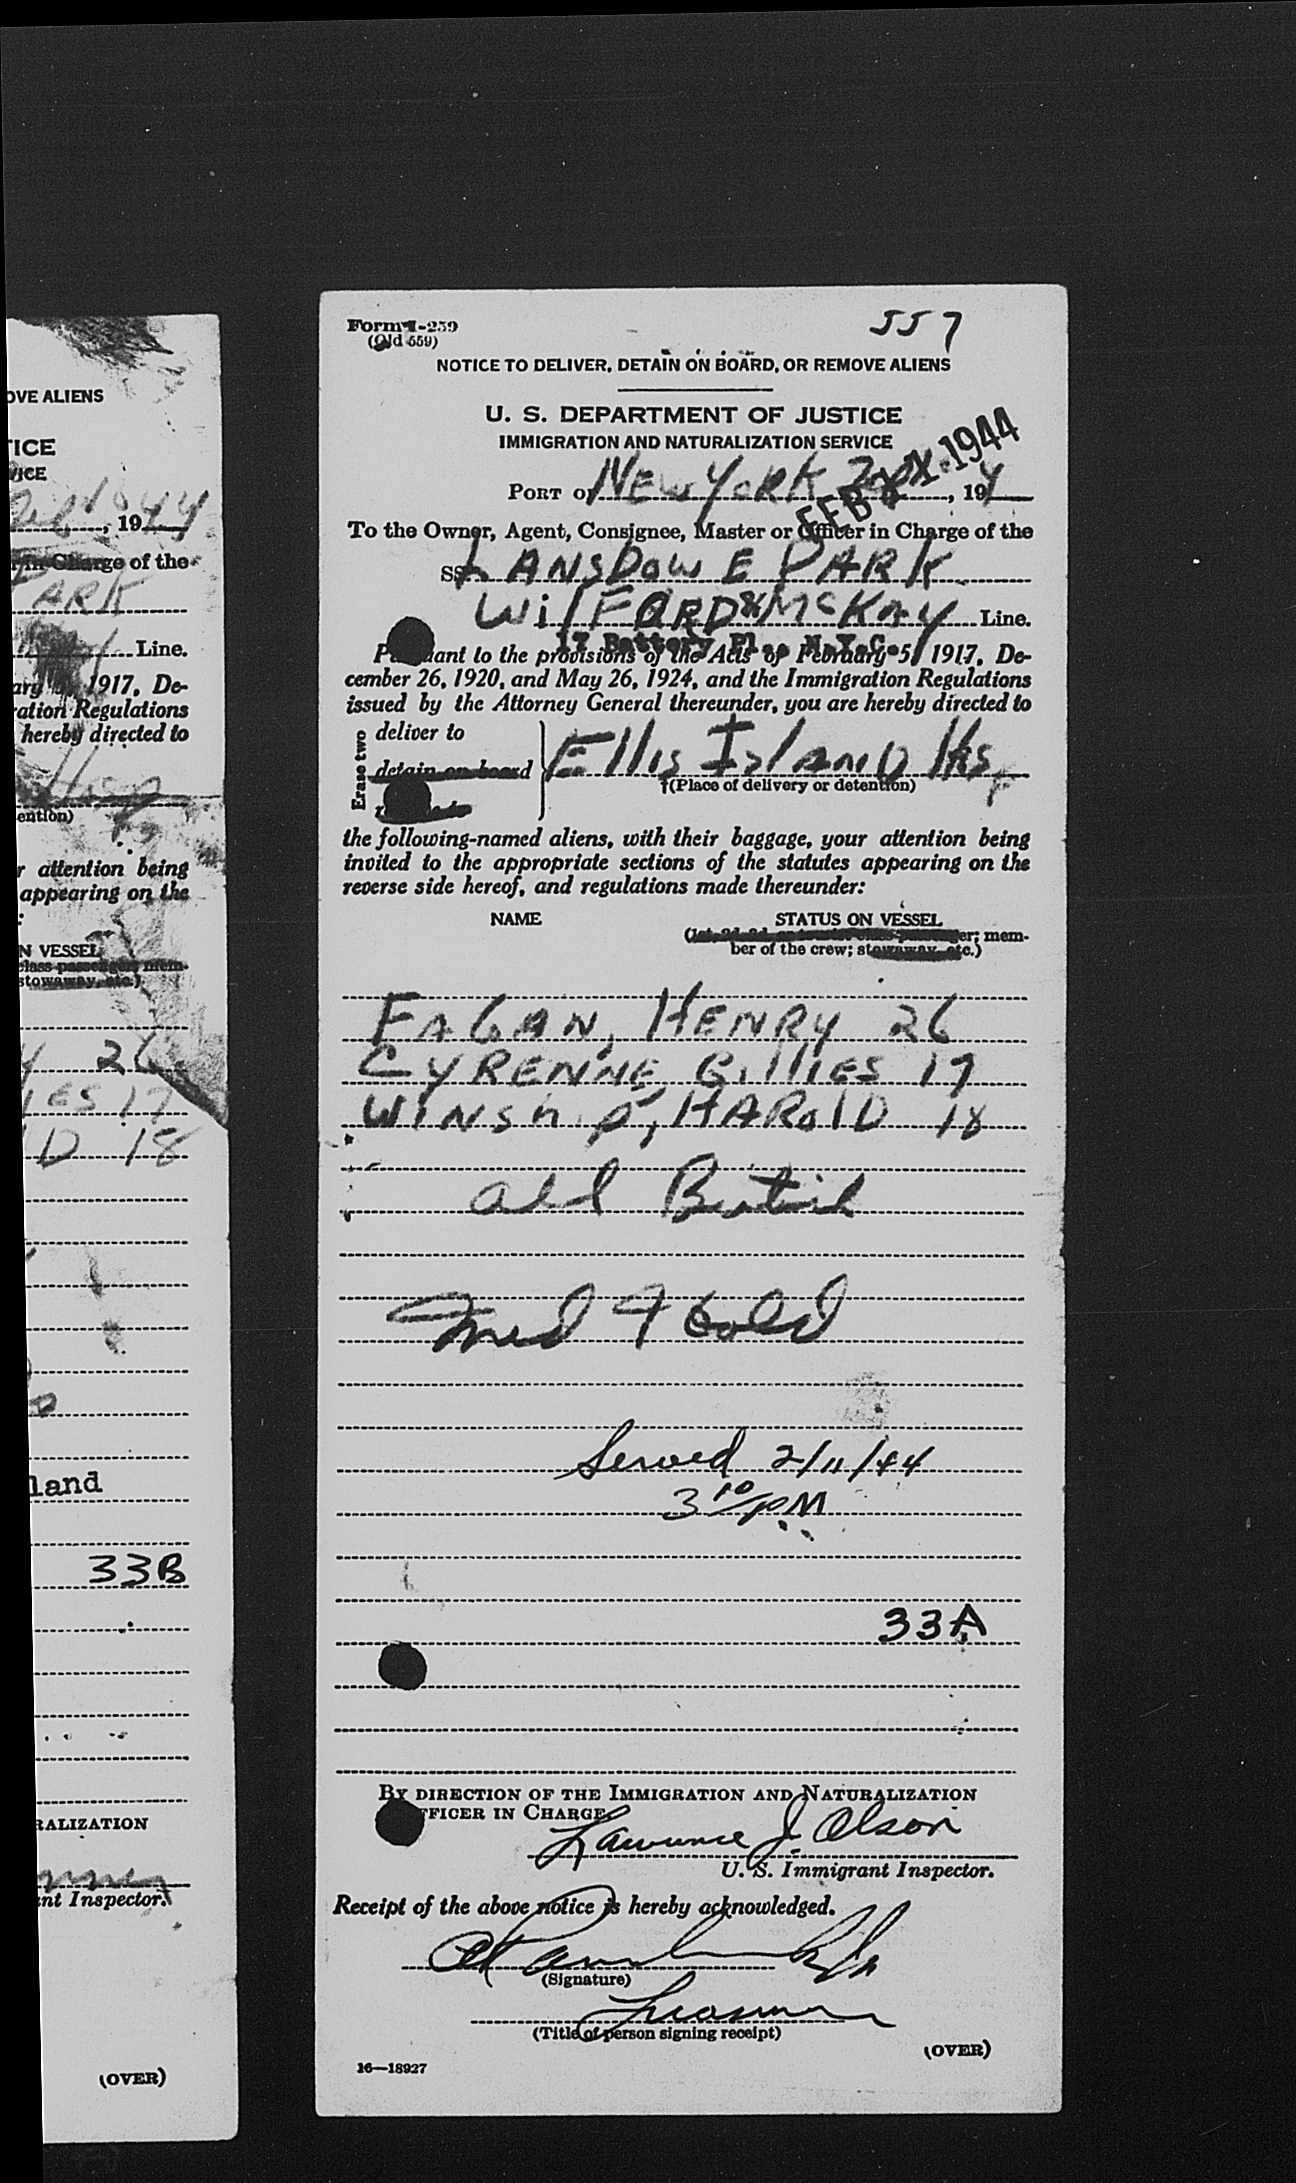 OVE ALIENS
ICE
VICE
, 1944
in Charge of the
PARK
Line.
1917, De-
ration Regulations
hereby directed to
Hosp
ention)
r attention being
appearing on the
:
N VESSEL
class passenger; mem-
stowaway, etc.)
26
IES 17
D 18
land
33B
RALIZATION
nt Inspector.
(OVER)
Form I-259
(Old 559)
557
NOTICE TO DELIVER, DETAIN ON BOARD, OR REMOVE ALIENS
U. S. DEPARTMENT OF JUSTICE
IMMIGRATION AND NATURALIZATION SERVICE
FEB 11 1944
PORT OF NEW YORK, 194
To the Owner, Agent, Consignee, Master or Officer in Charge of the
SS LANSDOWE PARK
WilFORD & McKAY Line.
17 Battery Pl., N.Y.C.
Pursuant to the provisions of the Acts of February 5, 1917, De-
cember 26, 1920, and May 26, 1924, and the Immigration Regulations
issued by the Attorney General thereunder, you are hereby directed to
Erase two
deliver to
detain on board
Ellis IslAND Hsp
(Place of delivery or detention)
the following-named aliens, with their baggage, your attention being
invited to the appropriate sections of the statutes appearing on the
reverse side hereof, and regulations made thereunder:
NAME STATUS ON VESSEL
(1st, 2d, 3d, or tourist class passenger; mem-
ber of the crew; stowaway, etc.)
FAGAN, HENRY 26
CYRENNE, GillIES 17
WINShip, HAROlD 18
all British
Med Hold
Served 2/11/44
3 10/PM
33A
BY DIRECTION OF THE IMMIGRATION AND NATURALIZATION
OFFICER IN CHARGE
Lawrence J. Olson
U. S. Immigrant Inspector.
Receipt of the above notice is hereby acknowledged.
(Signature)
(Title of person signing receipt)
(OVER)
16—18927